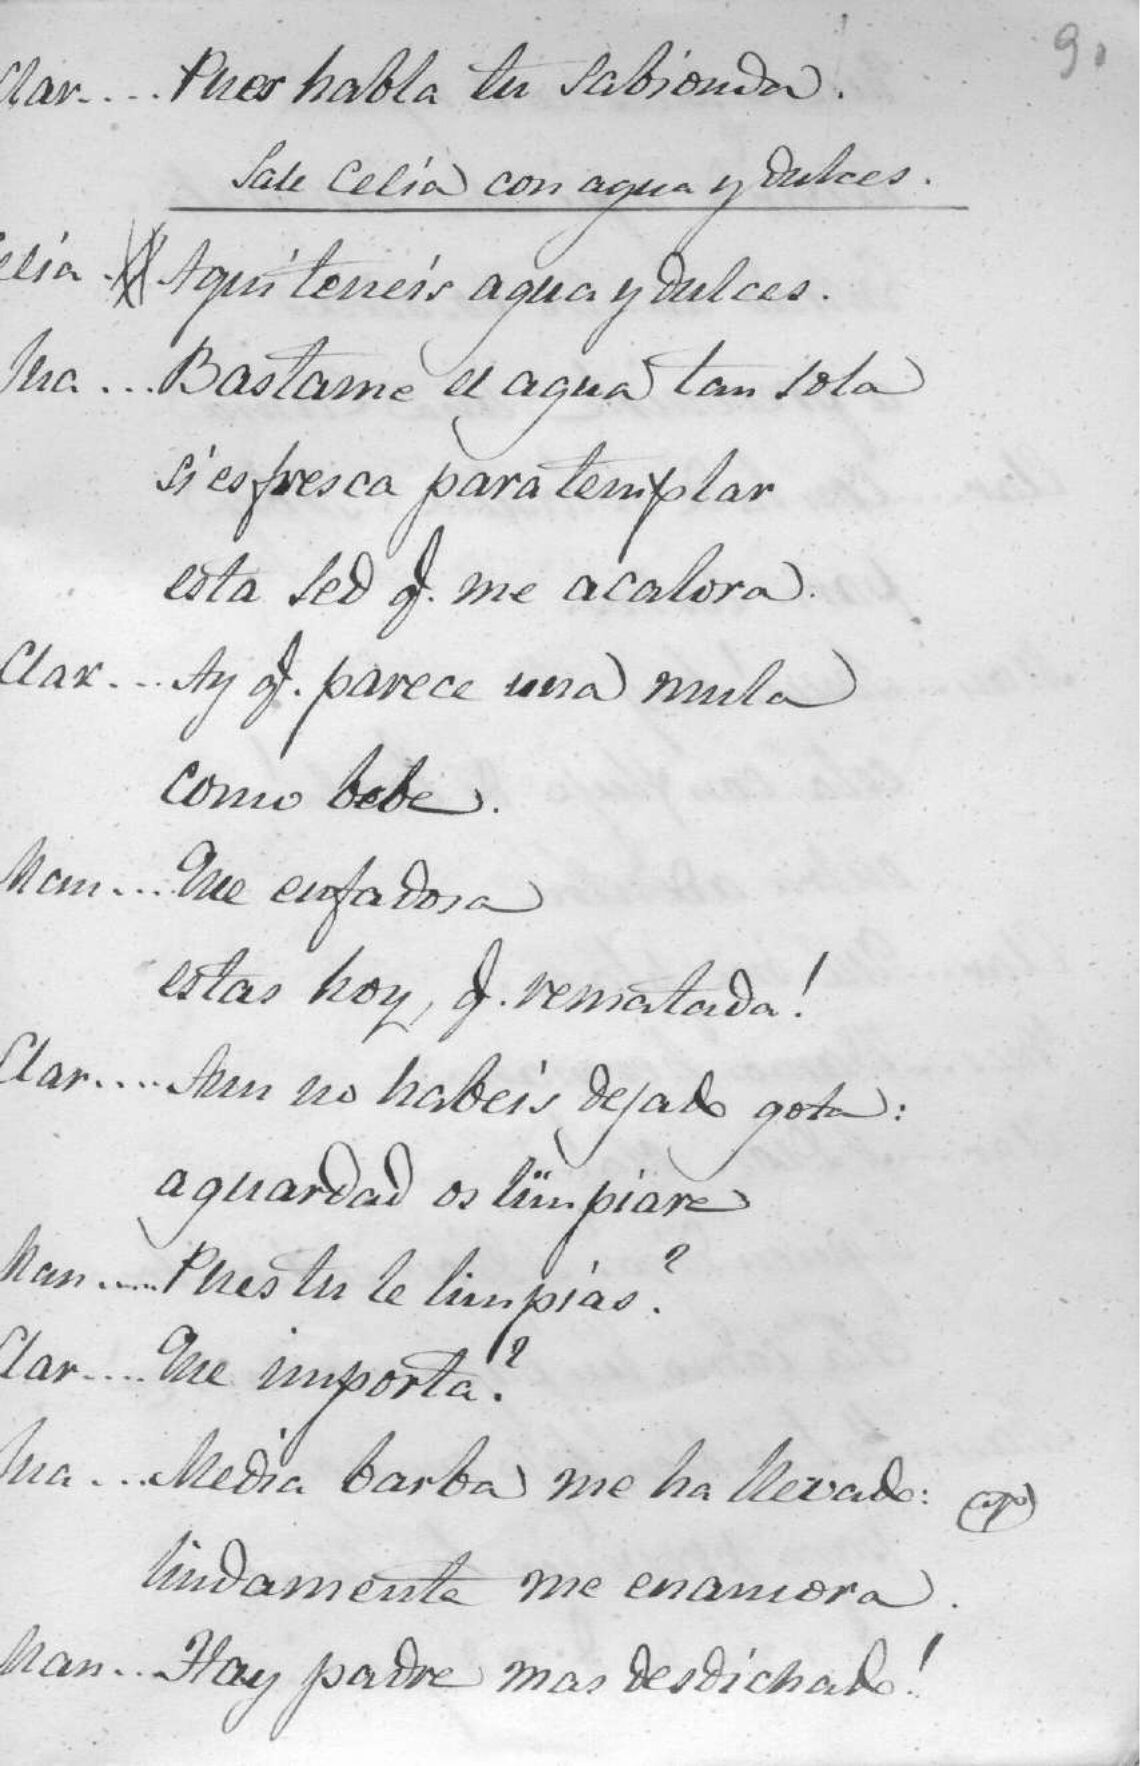 9.
Clar.... Pues habla tu sabionda.
Sale Celia con agua y dulces.
Celia . Aqui teneis agua y dulces.
Jua ... Bastame el agua tan sola
si es fresca para templar
esta sed q. me acalora.
Clar... Ay q. parece una mula
como bebe.
Man... Que enfadosa
estas hoy, q. rematada!
Clar.... Aun no habeis dejado gota:
aguardad os limpiare
Man..... Pues tu le limpias?
Clar.... Que importa?
Jua ... Media barba me ha llevado: (ap)
lindamente me enamora.
Man... Hay padre mas desdichado!